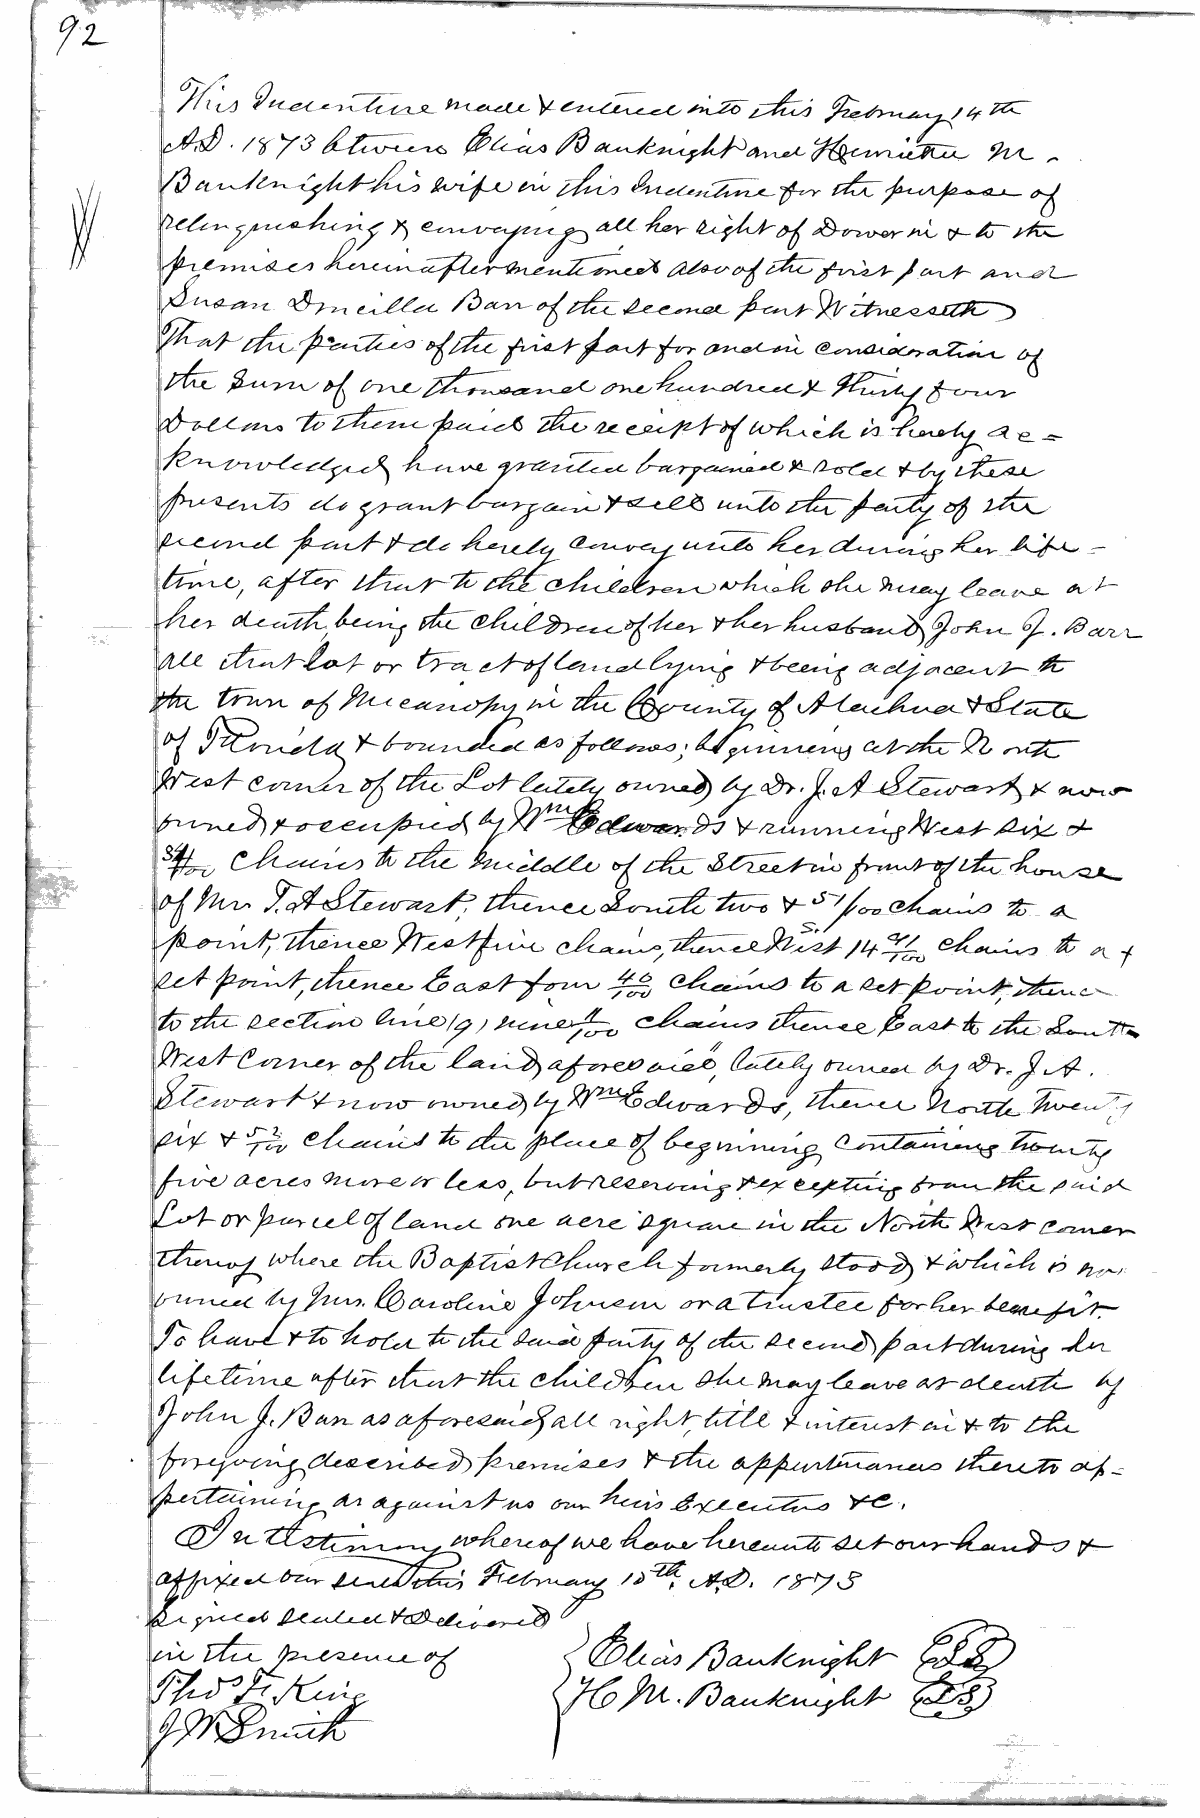 92
This Indenture made & entered into this February 14th
A.D. 1873 between Elias Bauknight and Henrietta M.
Bauknight his wife in this Indenture for the purpose of
relinquishing & conveying all her right of Dower in & to the
premises hereinafter mentioned also of the first part and
Susan Drucilla Barr of the second part Witnesseth
That the parties of the first part for and in consideration of
the sum of one thousand one hundred & thirty four
Dollars to them paid the receipt of which is hereby ac=
knowledged have granted bargained & sold & by these
presents do grant bargain & sell unto the party of the
second part & do hereby convey unto her during her life-
time, after that to the children which she may leave at
her death, being the children of her & her husband, John J. Barr
all that Lot or tract of land lying & being adjacent to
the town of Micanopy in the County of Alachua & State
of Florida & bounded as follows; beginning at the North
West corner of the Lot lately owned by Dr. J. A Stewart & now
owned & occupied by Wm Edwards & running West six &
34/100 chains to the middle of the Street in front of the house
of Mrs T. A Stewart, thence South two & 51/100 chains to a
point, thence West five chains, thence West S. 14 41/100 chains to a
set point, thence East four 40/100 chains to a set point, thence
to the section line (9) nine /100 chains thence East to the South
West Corner of the land aforesaid, lately owned by Dr. J. A.
Stewart & now owned by Wm Edwards, thence North Twenty
six & 52/100 chains to the place of beginning containing twenty
five acres more or less, but reserving & excepting from the said
Lot or parcel of land one acre square in the North West corner
thereof where the Baptist Church formerly stood & which is now
owned by Mrs. Caroline Johnson or a trustee for her benefit.
To have & to hold to the said party of the second part during her
lifetime after that the children she may leave at death by
John J. Barr as aforesaid, all right, title & interest in & to the
foregoing described premises & the appurtenances thereto ap=
pertaining as against us our heirs Executors &c.
In testimony whereof we have hereunto set our hands &
affixed our seals this February 15th. A.D. 1873
Signed sealed & Delivered
in the presence of
Elias Bauknight LS
Thos F. King
H M. Bauknight LS
J W Smith